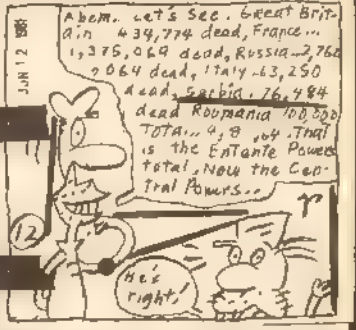 Ahem. Let's See. Great Brit-
ain 434,774 dead, France...
1,375,069 dead, Russia...2,760
,064 dead, Italy..63,250
dead, Serbia..76,484
dead Roumania 100,000
Total.. 4,8 ,64. That
is the Entente Powers
total. Now the Cen-
thal Powers...
JUN 12
12
He's
right!